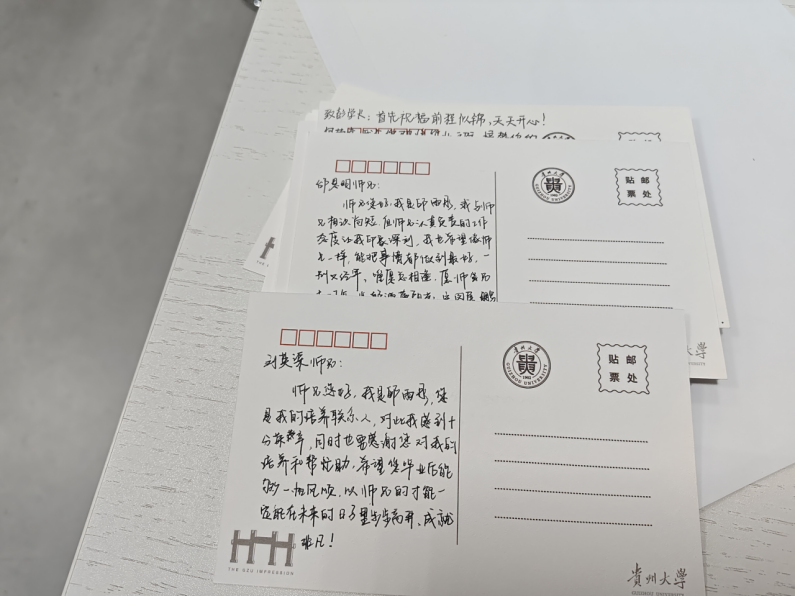 致郎学长：首先祝福前程似锦，天天开心！
贵州大学
GUIZHOU UNIVERSITY
1902
贴 邮
票 处
邰思明师兄：
师兄您好，我是师雨杨，我与师
兄相识尚短，但师兄认真负责的工作
态度让我印象深刻，我也希望像师
兄一样，能把事情都做到最好，一
别又经年，唯愿总相逢，愿师兄
大学
刘英梁师兄：
贵州大学
GUIZHOU UNIVERSITY
1902
贴 邮
票 处
师兄您好，我是师雨杨，您
是我的培养联系人，对此我感到十
分荣幸，同时也要感谢您对我的
培养和帮忙助，希望您毕业后能
够一帆风顺，以师兄的才能一
定能在未来的日子里步步高升，成就
非凡！
THE GZU IMPRESSION
贵州大学